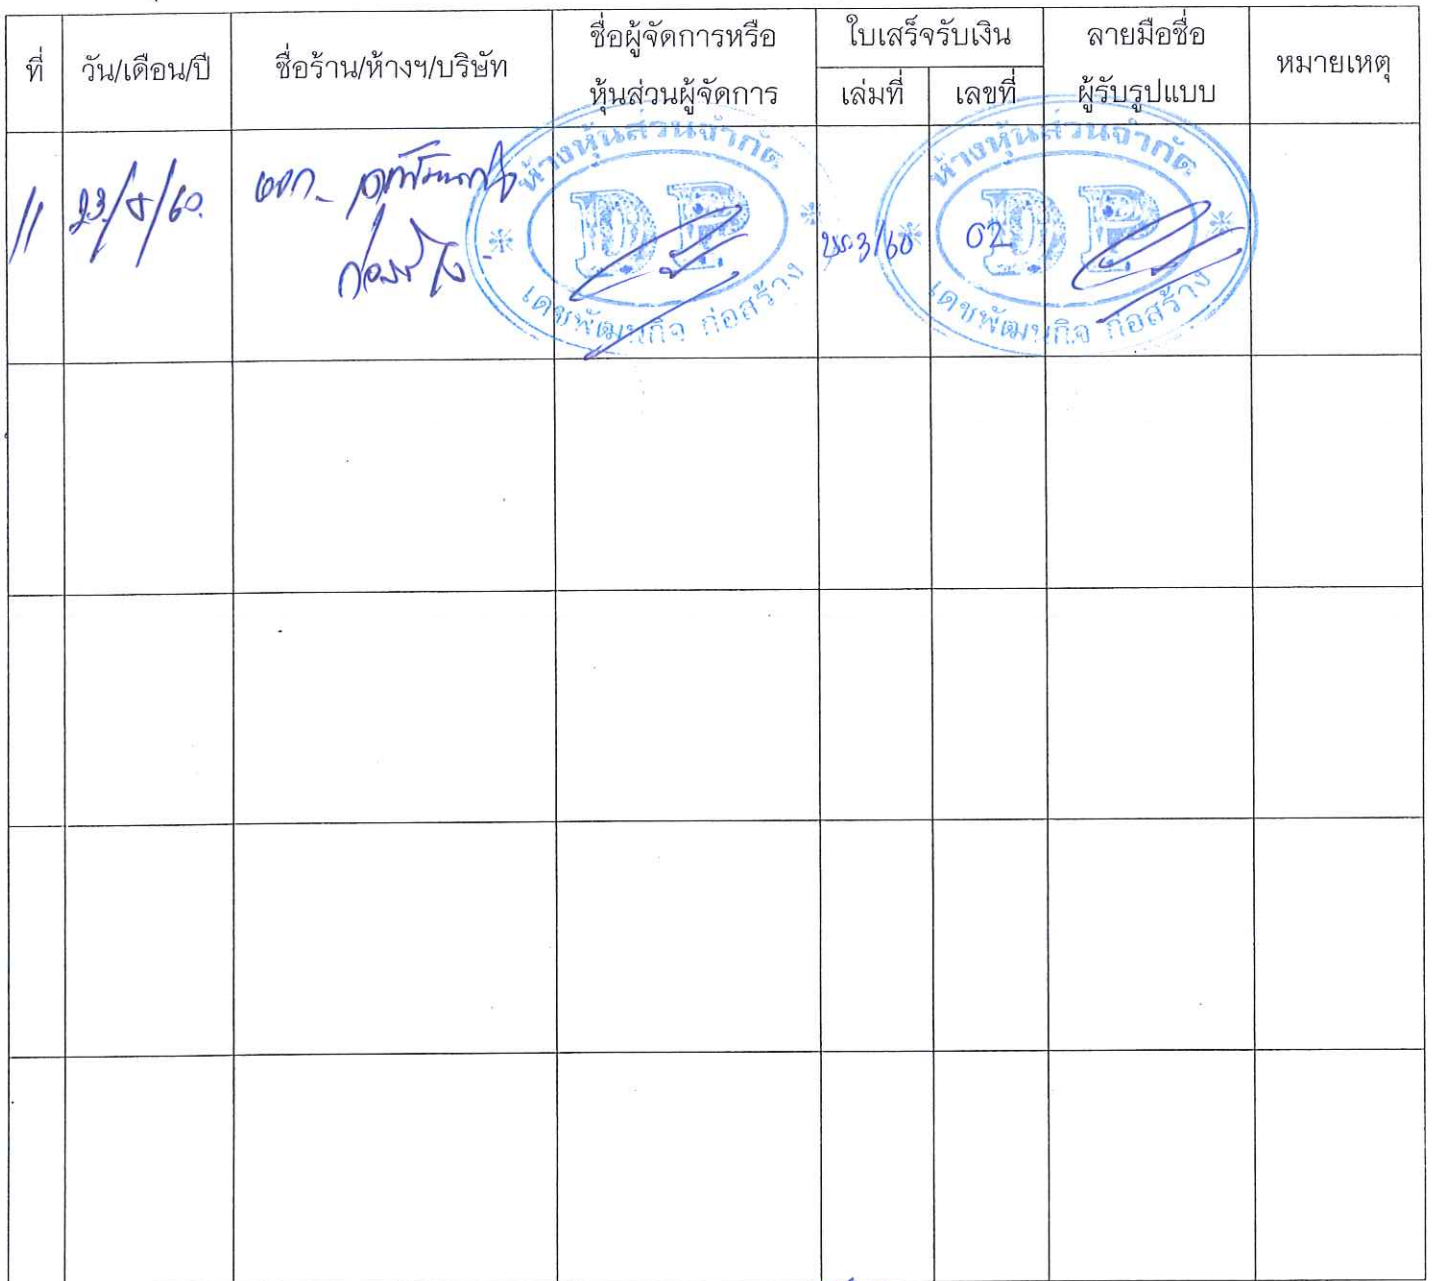 ที่
วัน/เดือน/ปี
ชื่อร้าน/ห้างฯ/บริษัท
ชื่อผู้จัดการหรือ
หุ้นส่วนผู้จัดการ
ใบเสร็จรับเงิน
เล่มที่
เลขที่
ลายมือชื่อ
ผู้รับรูปแบบ
หมายเหตุ
11
23/8/60.
หจก.
ห้างหุ้นส่วนจำกัด
DP
เดชพัฒนกิจ ก่อสร้าง
02
ห้างหุ้นส่วนจำกัด
DP
เดชพัฒนกิจ ก่อสร้าง